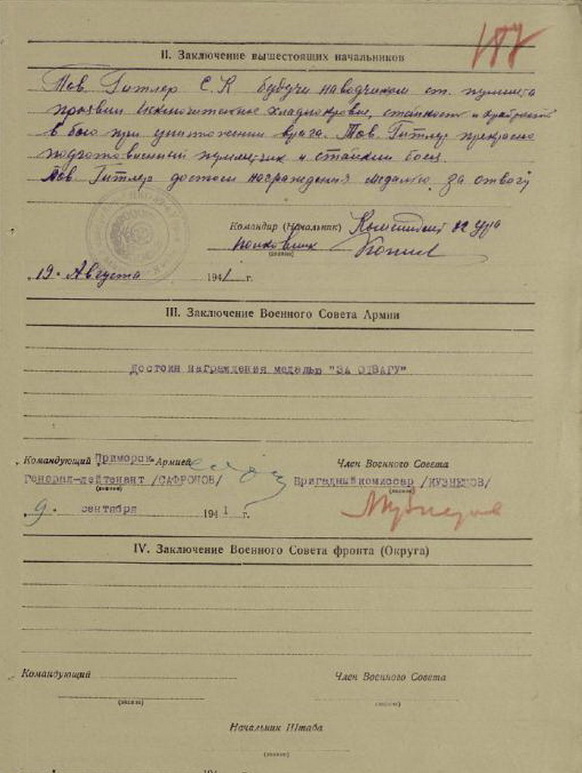 187
II. Заключение вышестоящих начальников
Тов. Гитлер С.К будучи наводчиком ст. пулемета
проявил исключительное хладнокровье, стойкость и храбрость
в бою при уничтожении врага. Тов. Гитлер прекрасно
подготовленный пулеметчик и стойкий боец.
Тов. Гитлер достоин награждения медалью за отвагу
Командир (Начальник) Комендант УРа
полковник
(звание)
19. Августа 1941 г.
III. Заключение Военного Совета Армии
Достоин награждения медалью "ЗА ОТВАГУ"
Командующий Приморск. Армией
Член Военного Совета
Генерал-лейтенант /САФРОНОВ/
Бригадный комиссар /КУЗНЕЦОВ/
(звание)
(звание)
9. сентября 1941 г.
IV. Заключение Военного Совета фронта (Округа)
Командующий
Член Военного Совета
(звание)
(звание)
Начальник Штаба
(звание)